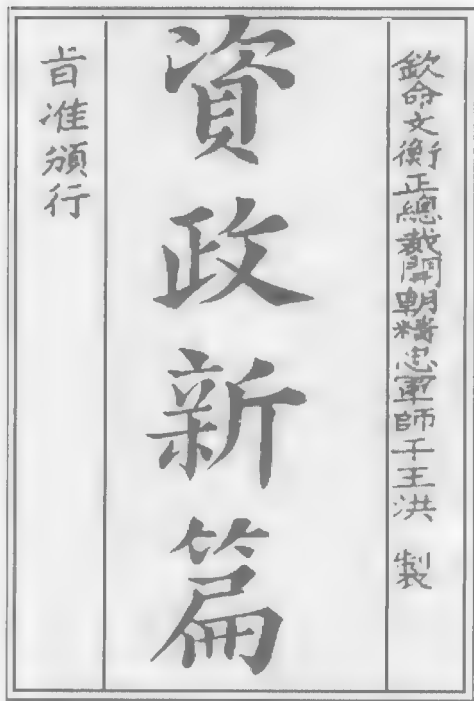 欽命文衡正總裁開朝精忠軍師干王洪 製
資政新篇
旨准頒行